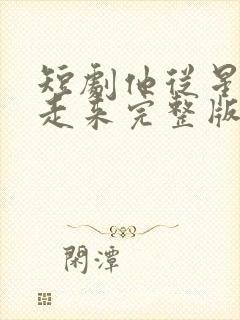 短劇他從星
走來完整版
閑潭